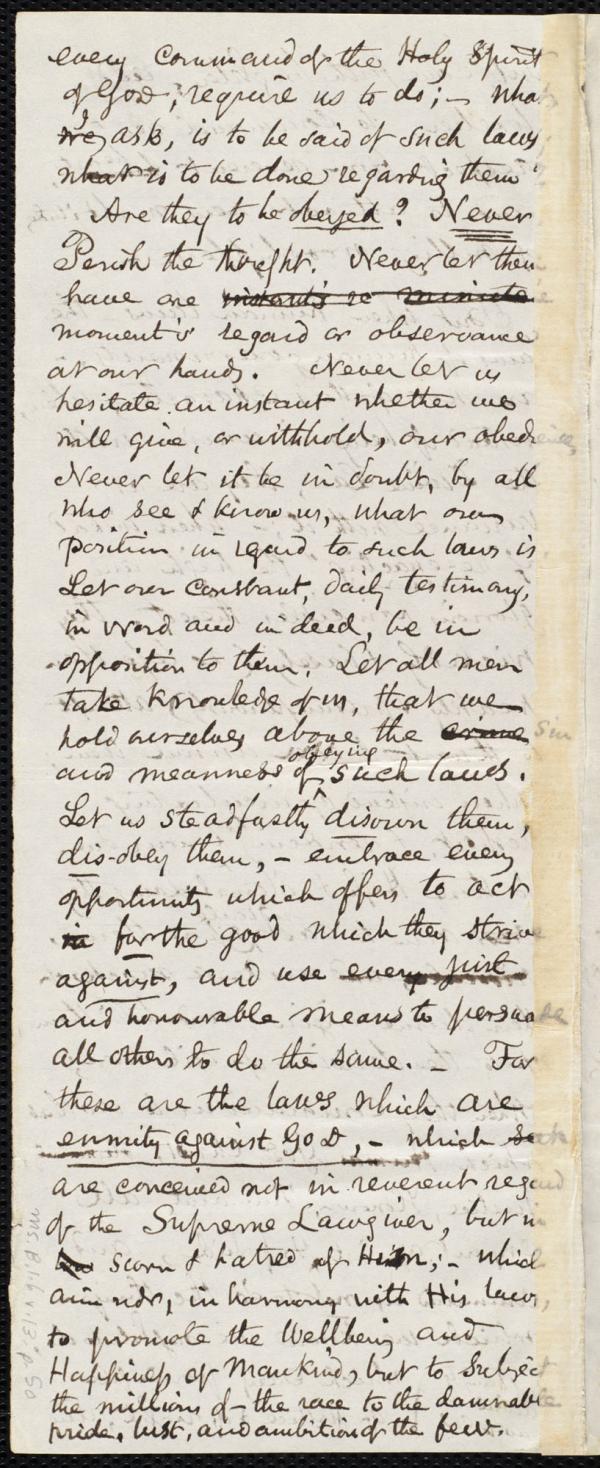 every command of the Holy Spirit
of God, require us to do; – what
I ask, is to be said of such laws
what is to be done regarding them?
Are they to be obeyed? Never
Perish the thought. Never let them
have one instant's or minute
moment's regard or observance
at our hands. Never let us
hesitate an instant whether we
will give, or withhold, our obedience,
Never let it be in doubt, by all
who see & know us, what our
position in regard to such laws is
Let our constant, daily testimony,
in word and in deed, be in
opposition to them. Let all men
take knowledge of us, that we
hold ourselves above the crime sin
obeying
and meanness of such laws.
Let us steadfastly disown them,
dis-obey them, – embrace every
opportunity which offers to act
in for the good which they strive
against, and use every just
and honourable means to persuade
all others to do the same. – For
these are the laws which are
enmity against God, – which
are conceived not in reverent regard
of the Supreme Lawgiver, but in
scorn & hatred of Him; – which
aim not, in harmony with His laws,
to promote the Wellbeing and
Happiness of Mankind, but to subject
the millions of the race to the damnable
pride, lust, and ambition of the few.